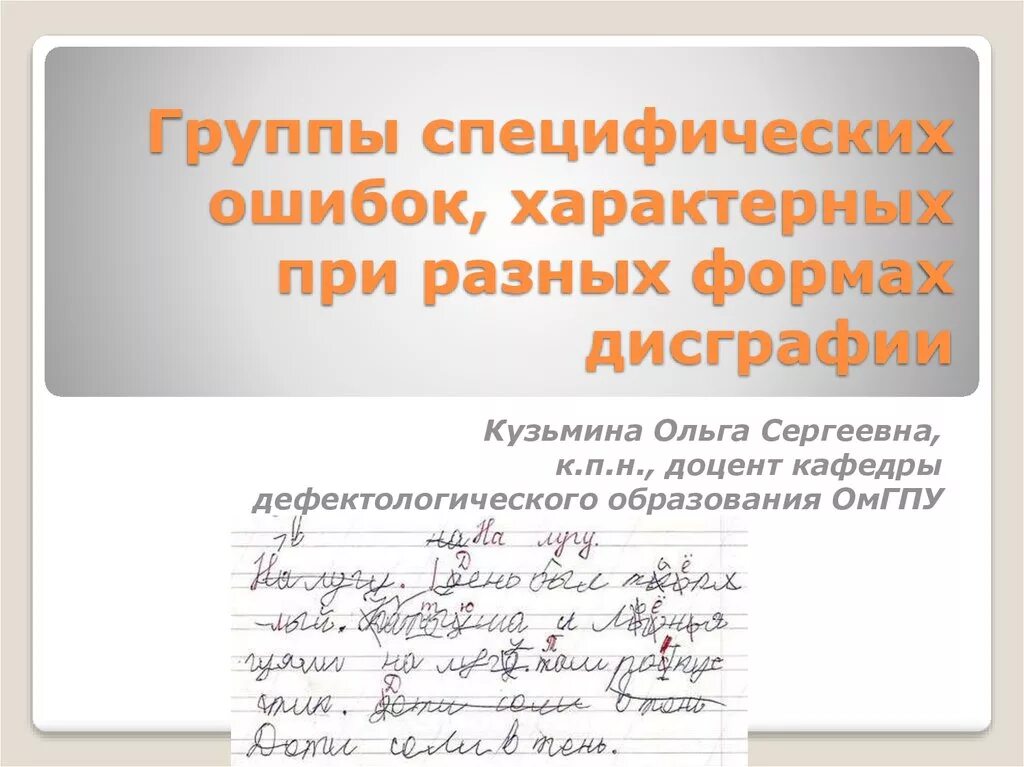 Группы специфических
ошибок, характерных
при разных формах
дисграфии
Кузьмина Ольга Сергеевна,
к.п.н., доцент кафедры
дефектологического образования ОмГПУ
на На лугу.
На лугу. День был
лый. и
гуяли на там
тик. Доти соли в тень
Доти соли в тень.